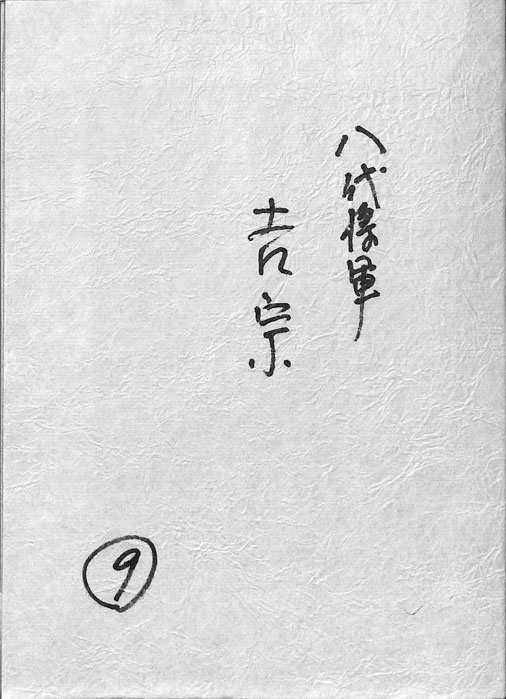 八代将軍
吉宗
⑨